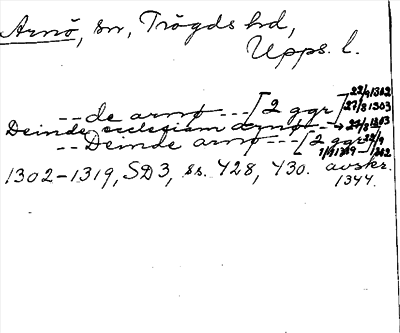 Arnö, sn, Trögds hd,
Upps. l.
-- de arnø --- [2 ggr] 22/9 1302 27/8 1303
Deinde ecclesiam arnø -- → 27/8 1303
-- Deinde arnø --- [2 ggr 22/9 1302
1302-1319, SD3, ss. 428, 430. avskr.
1344.